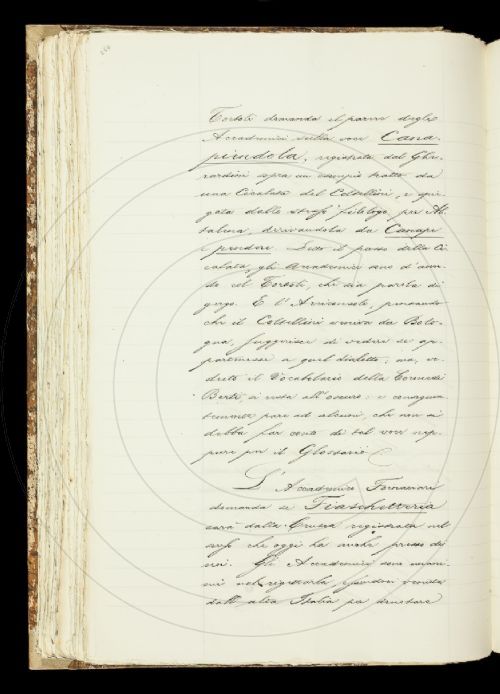 Tortoli domanda il parere degli
Accademici sulla voce Cana-
pindola, registrata dal Ghe-
rardini sopra un esempio tratto da
una Cicalata del Coltellini, e spie-
gata dallo stesso filologo per Al-
talena, derivandola da Canapi
e pendere. Letto il passo della Ci-
calata, gli Accademici sono d'accor-
do col Tortoli, che sia parola di
gergo. E l'Arciconsolo, pensando
che il Coltellini veniva da Bolo-
gna, suggerisce di vedere se ap-
partenesse a quel dialetto; ma, ve-
duto il Vocabolario della Coronedi
Berti, si resta all'oscuro: e consegue-
temente pare ad alcuni, che non si
debba far conto di tal voce nep-
pure per il Glossario.
L'Accademico Fornaciari
domanda se Fiaschetteria
sarà dalla Crusca registrata nel
senso che oggi ha anche presso di
noi. Gli Accademici sono unani-
mi nel registrarla, essendosi venuta
dall'alta Italia per denotare